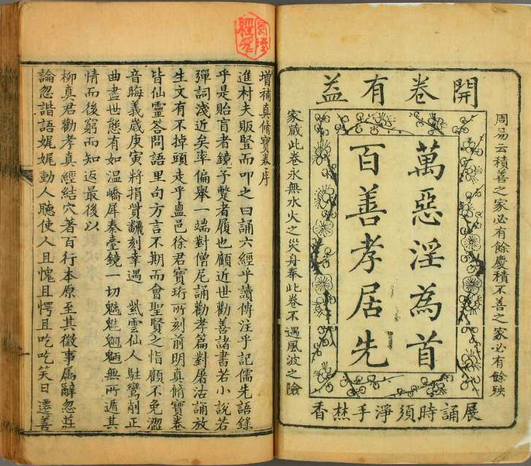 開卷有益
周易云積善之家必有餘慶積不善之家必有餘殃
萬惡淫為首
百善孝居先
家藏此卷永無水火之災舟奉此卷不遇風波之險
展誦時須淨手焚香
增補真脩寶卷序
進村夫販豎而叩之曰誦六經乎讀傳注乎記儒先語錄
乎是貽盲者鏡子躄者履也顧近世勸善諸書若小說若
彈詞淺近矣率偏舉一端對僧尼誦勸孝篇對屠沽誦放
生文有不掉頭走乎盥邑徐君寶珩所刻前明真脩寶卷
皆仙靈答問語里句方言不期而會聖賢之指顧不免澀
音晦義歲庚寅將捐貲議刻幸遇 紫雲仙人駐鸞削正
曲盡世態有如溫嶠犀秦臺鏡一切魑魅魍魎無所遁其
情而後窮而知返最後以
柳真君勸孝真經結穴者百行本原至其徵事屬辭忽莊
論忽諧語娓娓動人聽使人且愧且愕且吃吃笑日遷善